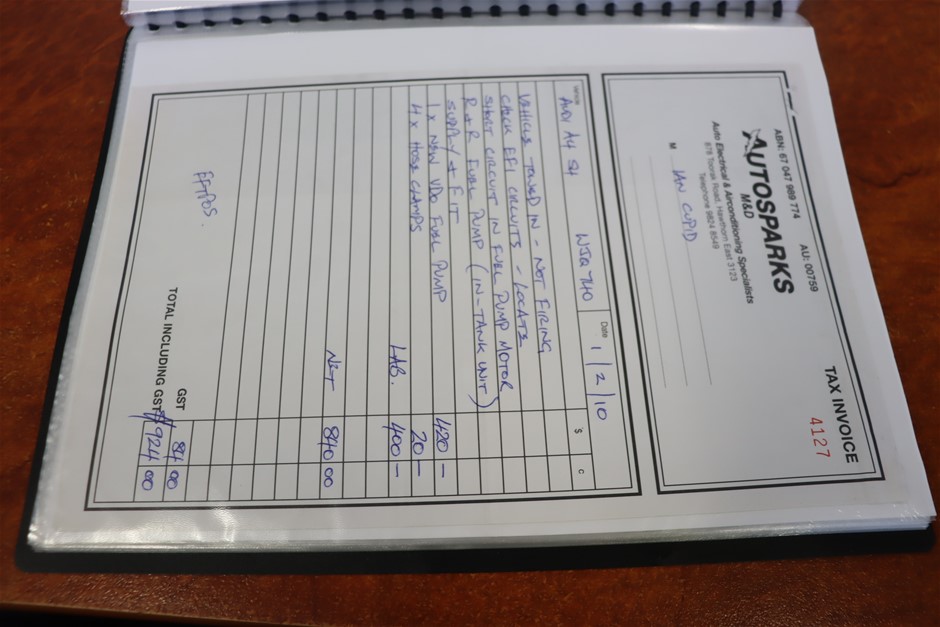 TAX INVOICE
4127
ABN: 67 047 989 774 AU: 00759
AUTOSPARKS
M&D
Auto Electrical & Airconditioning Specialists
678 Toorak Road, Hawthorn East 3123
Telephone 9824 8549
M IAN CUPID
Vehicle AUDI A4 S4 WJQ 740 Date 1/2/10
$ c
VEHICLE TOWED IN - NOT FIRING
CHECK EFI CIRCUITS - LOCATE
SHORT CIRCUIT IN FUEL PUMP MOTOR
R & R FUEL PUMP (IN-TANK UNIT)
SUPPLY & FIT
1 x NEW VDO FUEL PUMP 420 -
4 x HOSE CLAMPS 20 -
LAB. 400 -
NET 840 00
GST 84 00
TOTAL INCLUDING GST $924 00
EFTPOS.